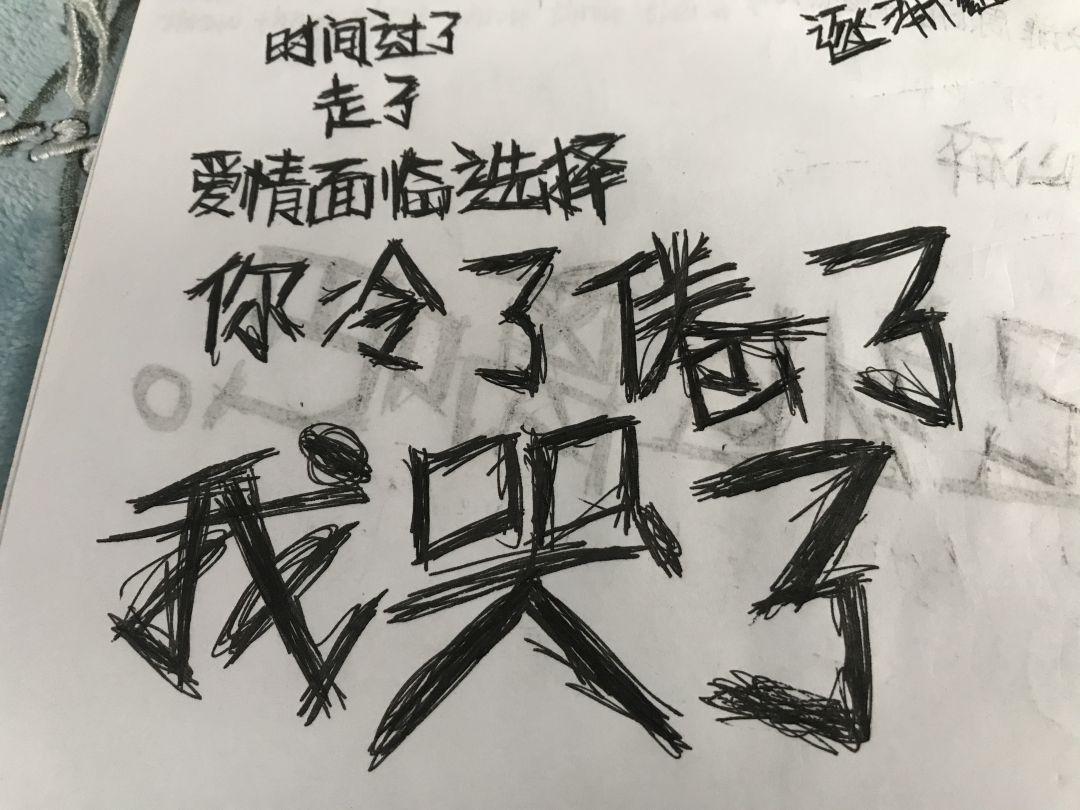 时间过了
走了
爱情面临选择
你冷了倦了
我哭了